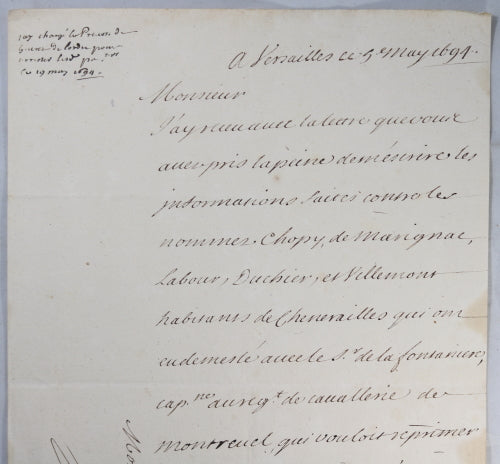 chargé le Prevost de
pour
le 19 may 1694.
A Versailles ce 5e May 1694.
Monsieur
J'ay receu avec la lettre que vous
avez pris la peine de m'escrire les
informations faites contre les
nommez Chopy, de Marignac,
Labour, Duchier, et Villemont
habitants de Chenerailles qui ont
eu demeslé avec le Sr. de la fontaine,
capne. au regt. de cavallerie de
Montrevel, qui vouloit reprimer